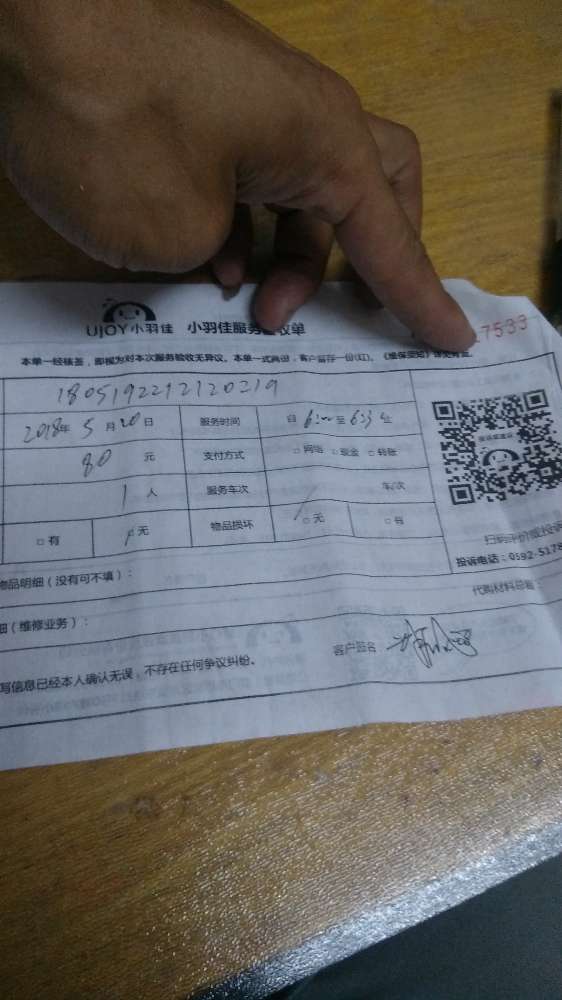 UJOY小羽佳 小羽佳服务 收单
7533
本单一经核签，即视为对本次服务验收无异议。本单一式两份，客户留存一份(红)。《维保须知》详见背面。
1805192212120219
2018年5月20日 服务时间 自6:00至6:33止
80 元 支付方式 □网络 □现金 □转账
1 人 服务车次 车/次
□有 □无 物品损坏 □无 □有
扫码评价或投诉
投诉电话：0592-5178
物品明细（没有可不填）：
代购材料总套：
细（维修业务）：
客户签名：
写信息已经本人确认无误，不存在任何争议纠纷。